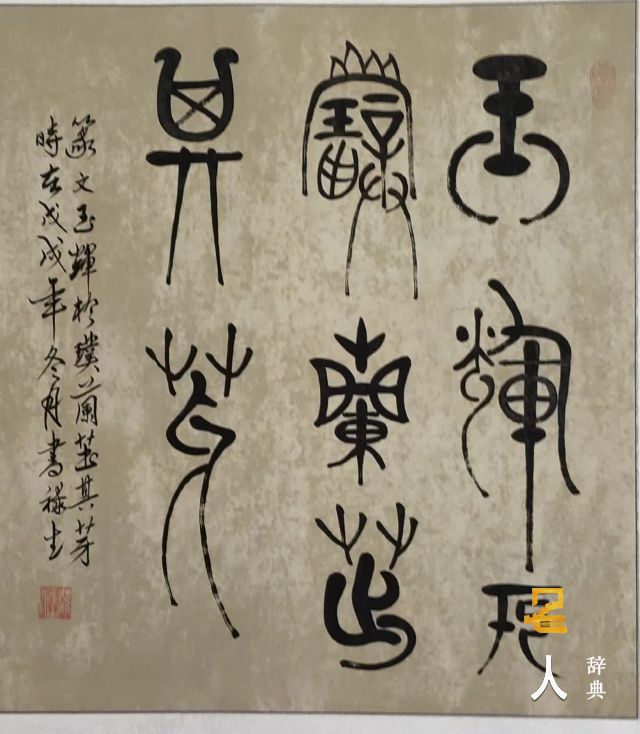 玉輝於
璞蘭茁
其芽
篆文玉輝於璞蘭茁其芽
時在戊戌年冬月書祿生
名人
辞典